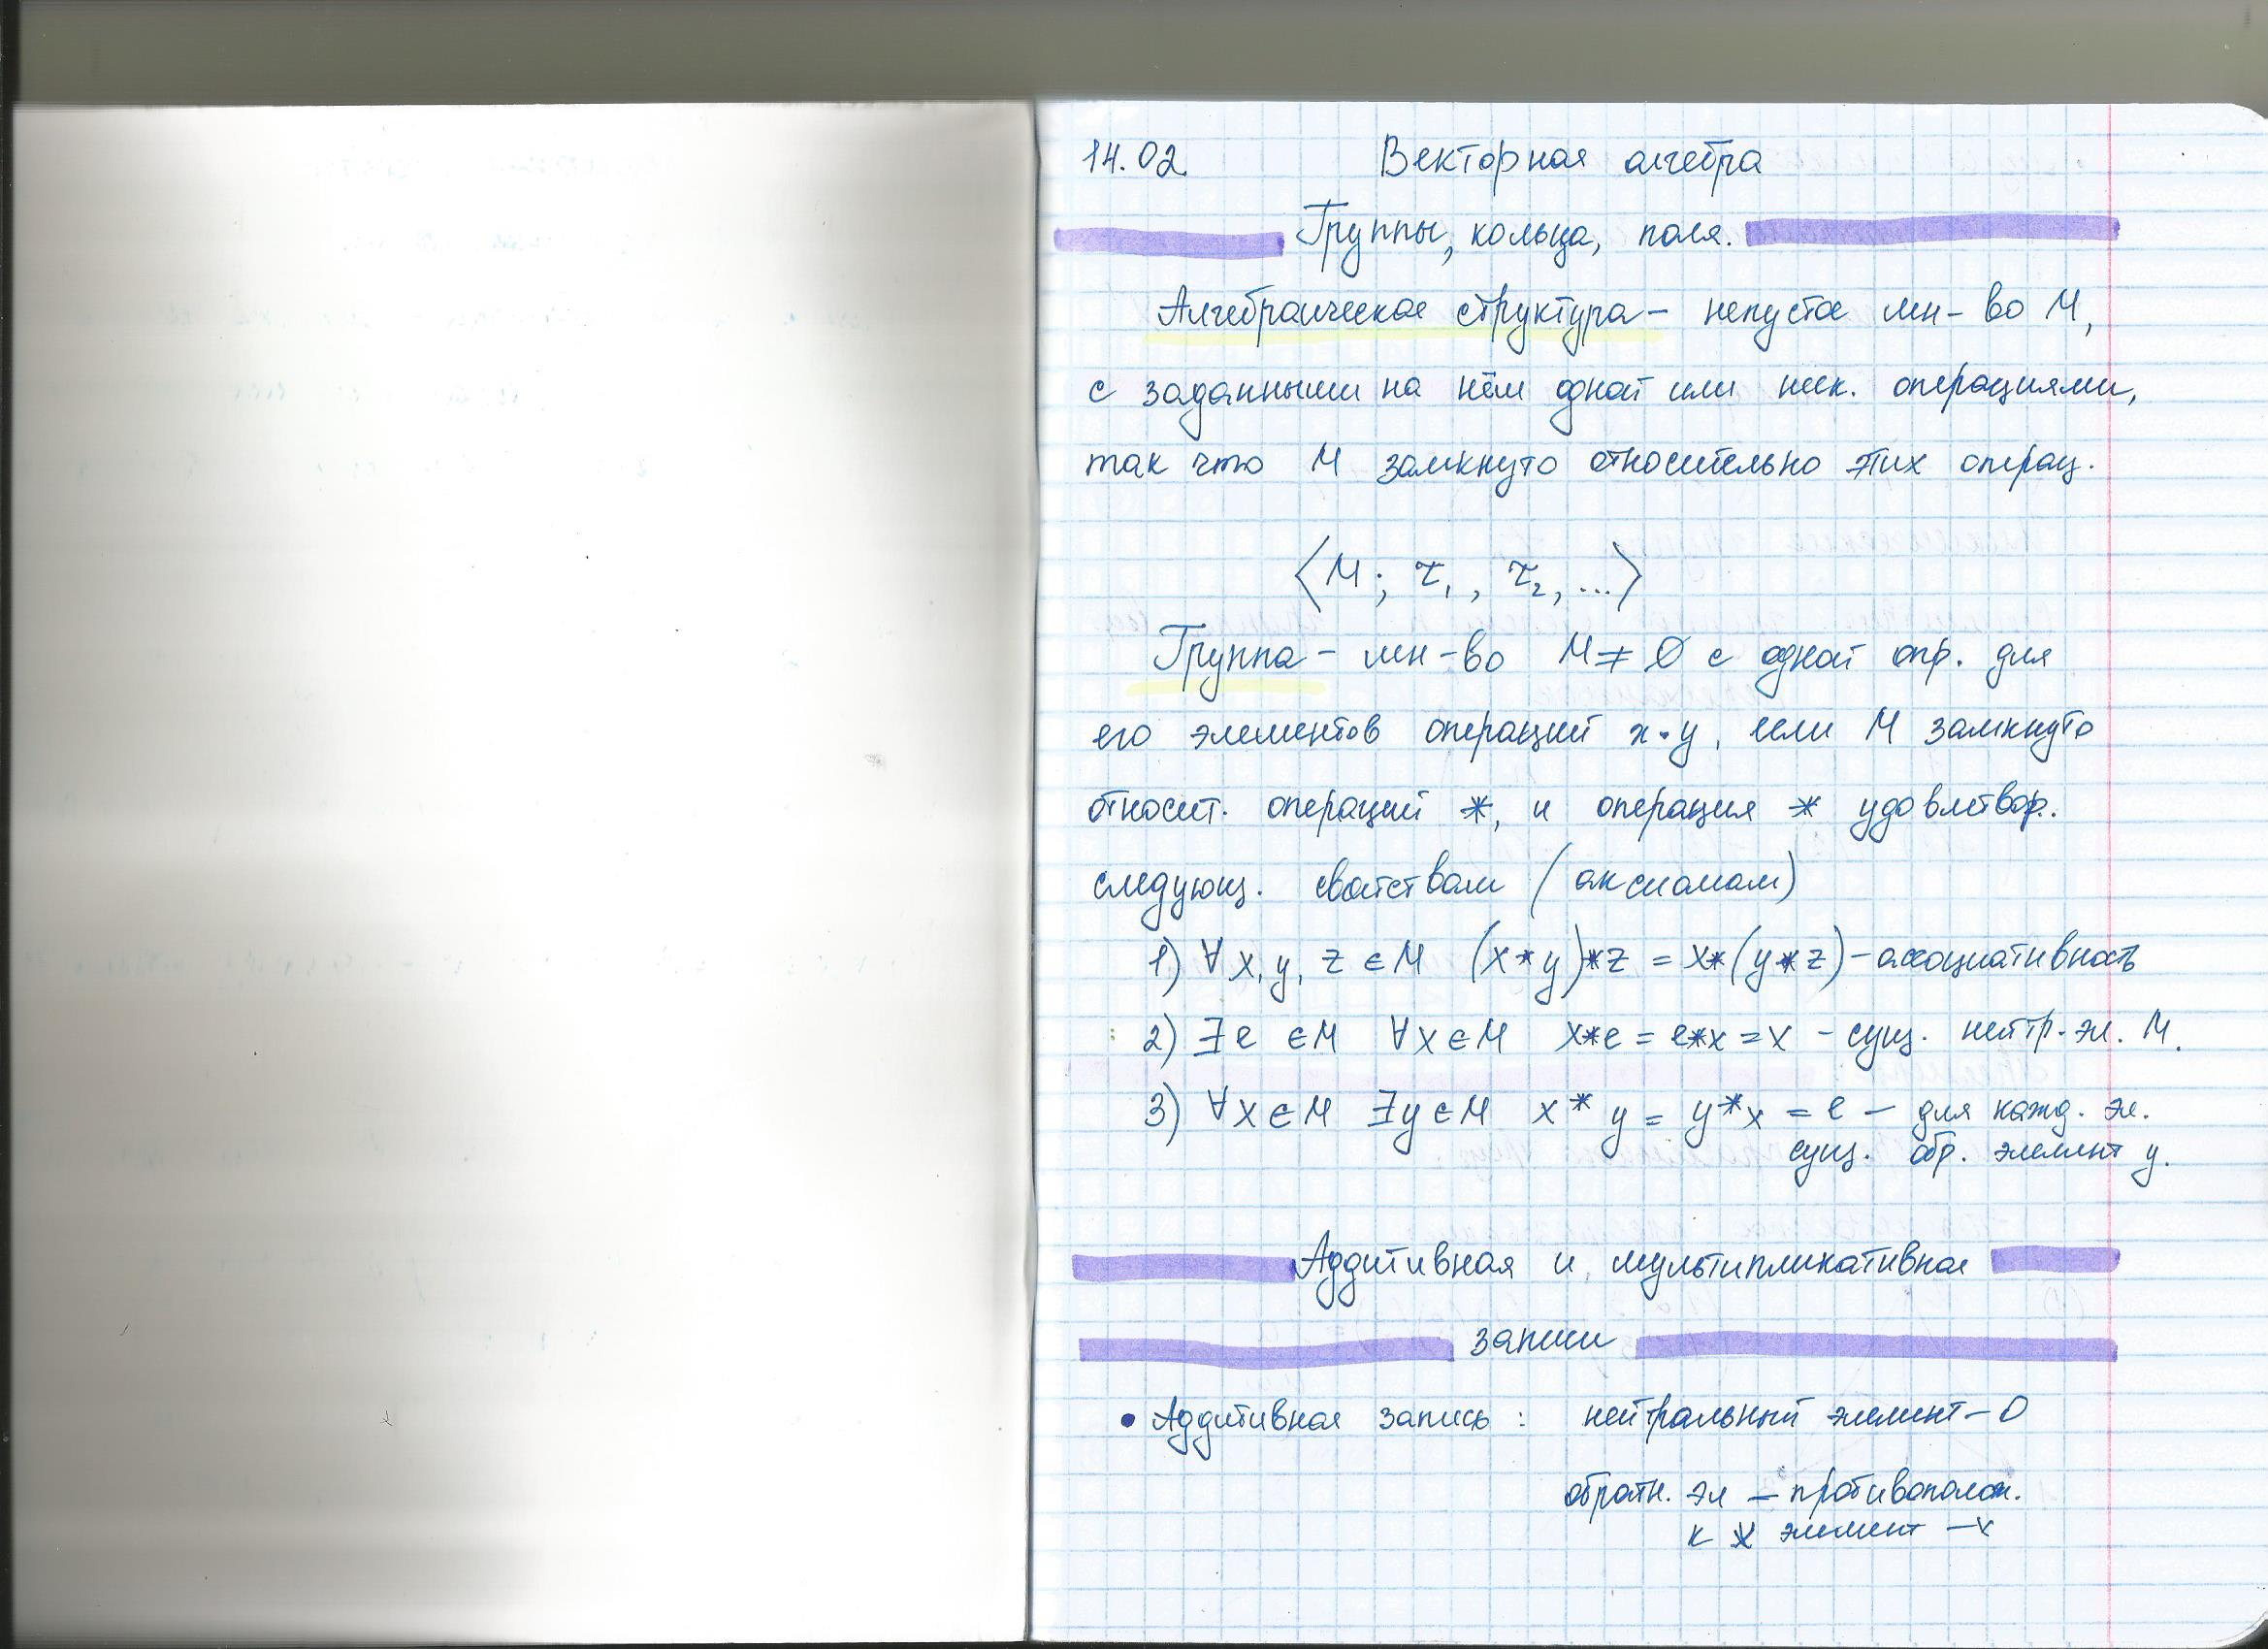 14.02 Векторная алгебра
Группы, кольца, поля.
Алгебраическое структура - непустое мн-во М,
с заданными на нём одной или неск. операциями,
так что М замкнуто относительно этих операц.
⟨М; τ₁, τ₂, ...⟩
Группа - мн-во М ≠ ∅ с одной опр. для
его элементов операций x * y, если М замкнуто
относит. операций *, и операция * удовлетвор.
следующ. свойствам (аксиомам)
1) ∀ x, y, z ∈ М (x * y) * z = x * (y * z) - ассоциативность
2) ∃ e ∈ М ∀ x ∈ М x * e = e * x = x - сущ. нейтр. эл. М.
3) ∀ x ∈ М ∃ y ∈ М x * y = y * x = e - для кажд. эл.
сущ. обр. элемент y.
Аддитивная и мультипликативное
записи
• Аддитивная запись : нейтральный элемент - 0
обратн. эл - противополож.
к x элемент -x